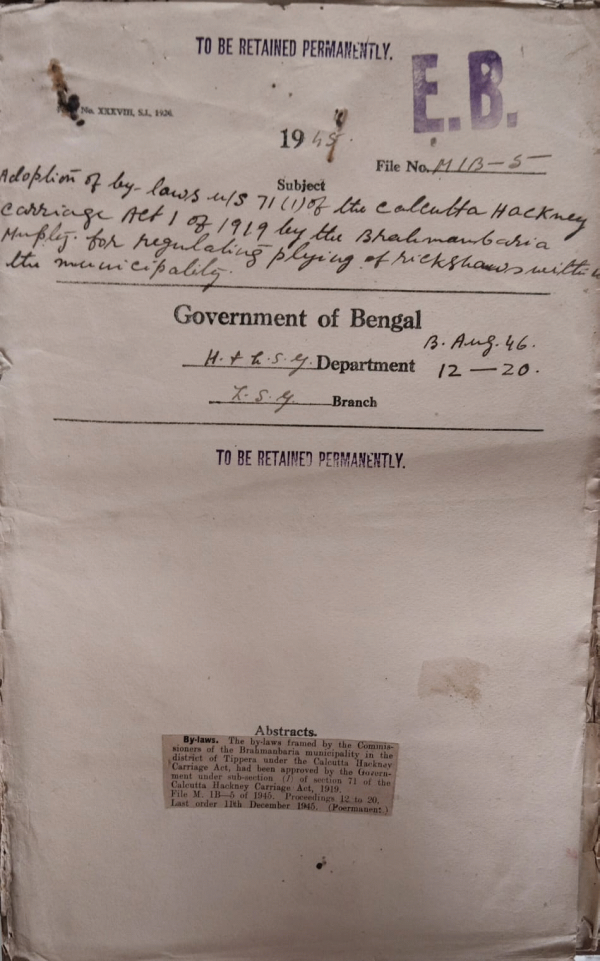 TO BE RETAINED PERMANENTLY.
E.B.
No. XXXVIII, S.I., 1926.
1945.
File No. M1B-5
Subject
Adoption of by-laws u/s 71(1) of the Calcutta Hackney
Carriage Act 1 of 1919 by the Brahmanbaria
Muply. for regulating plying of rickshaws within
the municipality.
Government of Bengal
B. Aug. 46.
H. & L.S.G. Department 12-20.
L.S.G. Branch
TO BE RETAINED PERMANENTLY.
Abstracts.
By-laws. The by-laws framed by the Commis-
sioners of the Brahmanbaria municipality in the
district of Tippera under the Calcutta Hackney
Carriage Act, had been approved by the Govern-
ment under sub-section (1) of section 71 of the
Calcutta Hackney Carriage Act, 1919.
File M. 1B—5 of 1945. Proceedings 12 to 20.
Last order 11th December 1945. (Poermanent.)